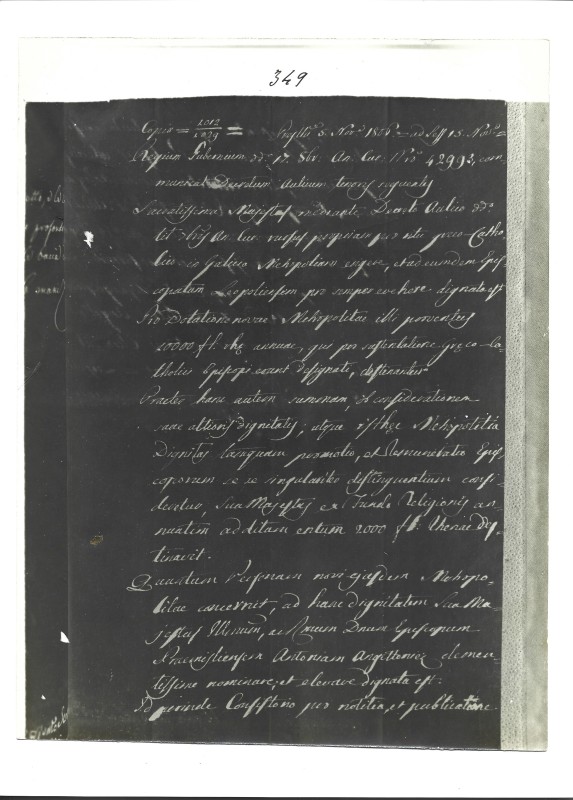 349
Copia = 1012/1879 = 5. Nov. 1806 = ad 15. Nov. =
Regium Gubernium ddo 17. 8br. An. Cur. Nro 42993, com-
municat Decretum Aulicum tenoris sequentis
Sacratissima Majestas mediante Decreto Aulico ddo
An. Cur. graeco-Catho-
licos in Galicia Metropolitam erigere, et ad eundem Epis-
copatum Leopoliensem pro semper evehere dignata est
Pro Dotatione novae Metropolitae illi proventus
10000 f annue, qui pro sustentatione Greco-Ca-
tholici Episcopi erant designati, destinantur
Praeter hanc autem summam, et consideratione
altioris dignitatis, utque isthec Metropolitica
Dignitas tanquam promotio, et Remuneratio Epis-
coporum se se singulariter distinguentium consi-
deretur, Sua Majestas ex Fundo Religionis an-
nuatem additam 2000 f. Rhenae des-
tinavit.
Quantum Personam novi ejusdem Metropo-
litae concernit, ad hanc dignitatem Sua Ma-
jestas Illmum, ac Rmum Dnum Episcopum
Premisliensem Antonium Angellowicz clemen-
tissime nominare, et elevare dignata est:
Id perinde Consistorio pro notitia, et publicatione